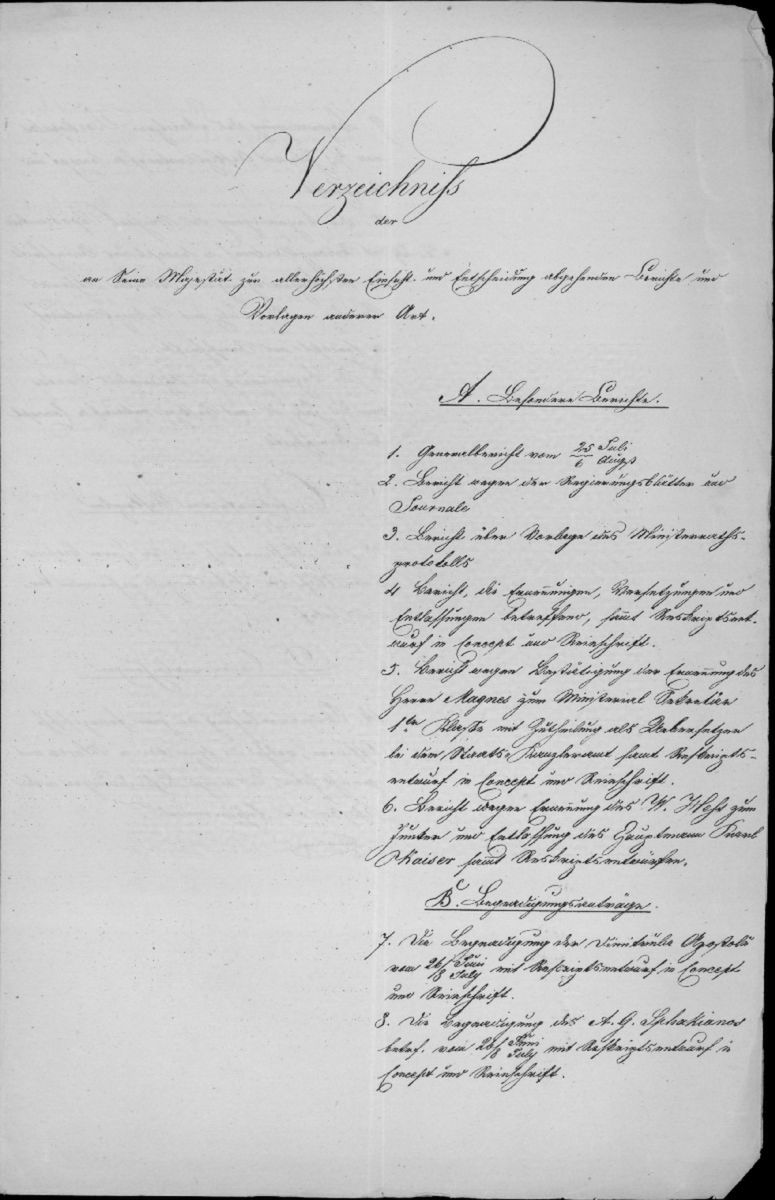 Verzeichniss
der
an Seine Majestät zur allerhöchsten Einsicht und Entscheidung abgehenden Berichte und
Vorlagen anderer Art.
A. Besondere Berichte.
1. Generalbericht vom 25 Juli / 6 Augst
2. Bericht wegen der Regierungsblätter und
Journale
3. Bericht über Vorlage des Ministerraths-
protokolls
4 Bericht, die Ernennungen, Versetzungen und
Entlassungen betreffend, sammt Reskriptsent-
wurf in Concept und Reinschrift.
5. Bericht wegen Bestätigung der Ernennung des
Herrn Magnes zum Ministerial Sekretär
1ter Klasse mit Zutheilung als Uebersetzer
bei dem Staats-Kanzleramt samt Reskripts-
entwurf in Concept und Reinschrift.
6. Bericht wegen Ernennung des W. Hess zum
Junker und Entlassung des Hauptmann Karl
Kaiser sammt Reskriptsentwürfen.
B. Begnadigungsanträge.
7. Die Begnadigung der Dimitrula Apostoli
vom 26/8 Juni/July mit Reskriptsentwurf in Concept
und Reinschrift.
8. Die Begnadigung des A. G. Sphakianos
betref. vom 26/8 Juni/July mit Reskriptsentwurf in
Concept und Reinschrift.